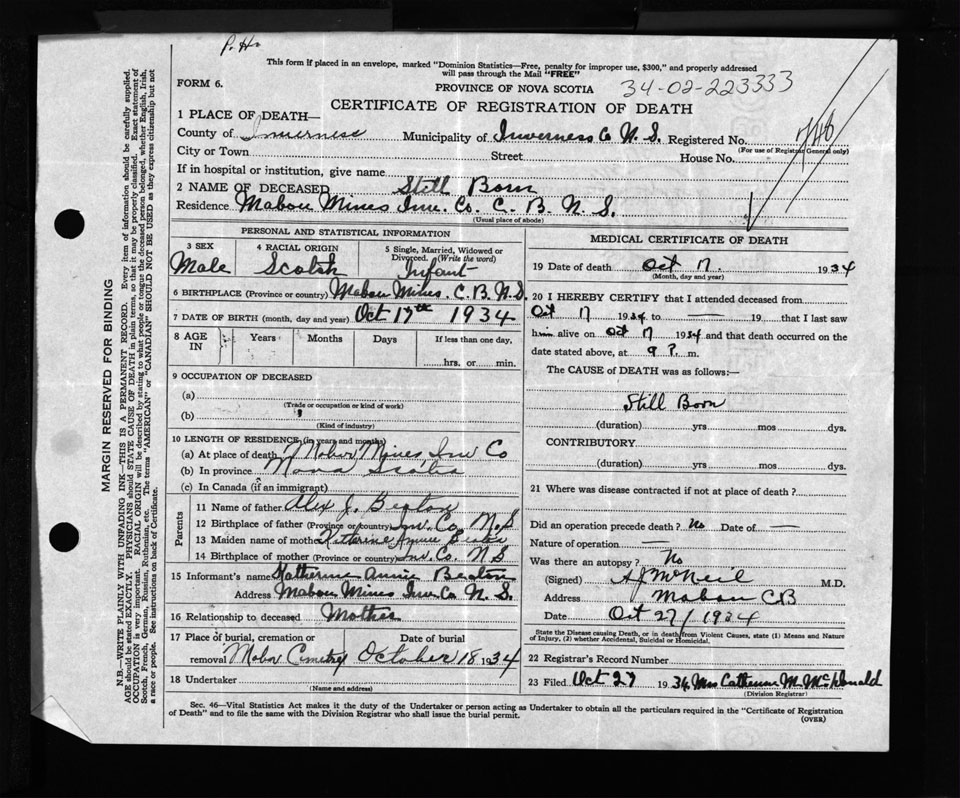 P. H.
This form if placed in an envelope, marked "Dominion Statistics—Free, penalty for improper use, $300," and properly addressed
will pass through the Mail "FREE"
FORM 6.
PROVINCE OF NOVA SCOTIA
34-02-223333
CERTIFICATE OF REGISTRATION OF DEATH
1 PLACE OF DEATH—
County of Inverness Municipality of Inverness Co N. S. Registered No.
(For use of Registrar General only)
City or Town Street House No.
If in hospital or institution, give name
2 NAME OF DECEASED Still Born
Residence Mabou Mines Inv. Co. C. B. N. S.
(Usual place of abode)
PERSONAL AND STATISTICAL INFORMATION
3 SEX 4 RACIAL ORIGIN 5 Single, Married, Widowed or
Divorced. (Write the word)
Male Scotch Infant
6 BIRTHPLACE (Province or country) Mabou Mines. C. B. N. S.
7 DATE OF BIRTH (month, day and year) Oct 17th 1934
8 AGE IN Years Months Days If less than one day,
hrs. or min.
9 OCCUPATION OF DECEASED
(a)
(Trade or occupation or kind of work)
(b)
(Kind of industry)
10 LENGTH OF RESIDENCE (in years and months)
(a) At place of death Mabou Mines Inv Co
(b) In province Nova Scotia
(c) In Canada (if an immigrant)
Parents
11 Name of father Alex J. Beaton
12 Birthplace of father (Province or country) Inv. Co. N. S
13 Maiden name of mother Katherine Annie Beaton
14 Birthplace of mother (Province or country) Inv. Co. N S
15 Informant's name Katherine Annie Beaton
Address Mabou Mines Inv Co. N. S.
16 Relationship to deceased Mother
17 Place of burial, cremation or
removal Mabou Cemetery
Date of burial
October 18 1934
18 Undertaker
(Name and address)
MEDICAL CERTIFICATE OF DEATH
19 Date of death Oct 17. 1934
(Month, day and year)
20 I HEREBY CERTIFY that I attended deceased from
Oct 17 1934 to — 19 that I last saw
him alive on Oct 17 1934 and that death occurred on the
date stated above, at 9 P. m.
The CAUSE of DEATH was as follows:—
Still Born
(duration) yrs mos dys.
CONTRIBUTORY
(duration) yrs mos dys.
21 Where was disease contracted if not at place of death?
Did an operation precede death? No Date of —
Nature of operation —
Was there an autopsy? No
(Signed) A J McNeil M.D.
Address Mabou C.B
Date Oct 27/1934
State the Disease causing Death, or in death from Violent Causes, state (1) Means and Nature
of Injury, (2) whether Accidental, Suicidal or Homicidal.
22 Registrar's Record Number
23 Filed Oct 27 1934 Mrs Catherine M. McDonald
(Division Registrar)
Sec. 46—Vital Statistics Act makes it the duty of the Undertaker or person acting as Undertaker to obtain all the particulars required in the "Certificate of Registration
of Death" and to file the same with the Division Registrar who shall issue the burial permit.
(OVER)
MARGIN RESERVED FOR BINDING
N.B.—WRITE PLAINLY WITH UNFADING INK—THIS IS A PERMANENT RECORD. Every item of information should be carefully supplied.
AGE should be stated EXACTLY. PHYSICIANS should STATE CAUSE OF DEATH in plain terms, so that it may be properly classified. Exact statement of
OCCUPATION is very important. RACIAL ORIGIN will be described by stating to what people or tongue the deceased person belonged, whether English, Irish,
Scotch, French, German, Russian, Ruthenian, etc. The terms "AMERICAN" or "CANADIAN" SHOULD NOT BE USED as they express citizenship but not
a race or people. See instructions on back of Certificate.